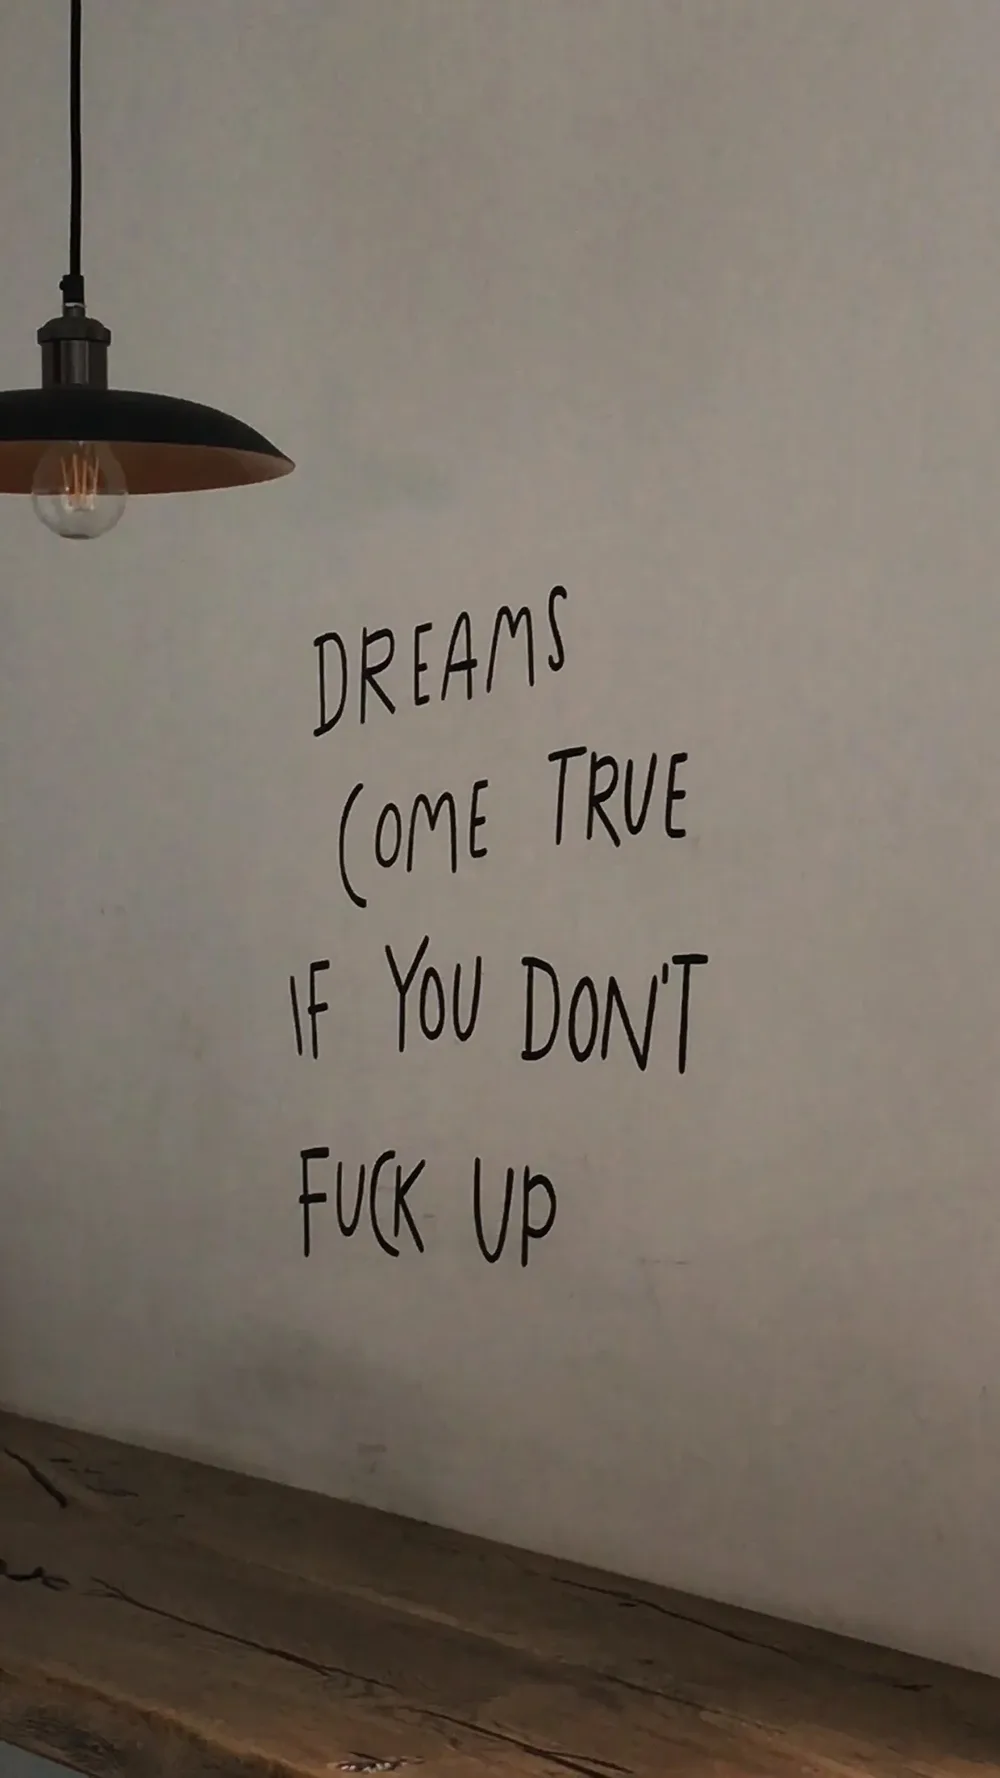 DREAMS
COME TRUE
IF YOU DON'T
FUCK UP